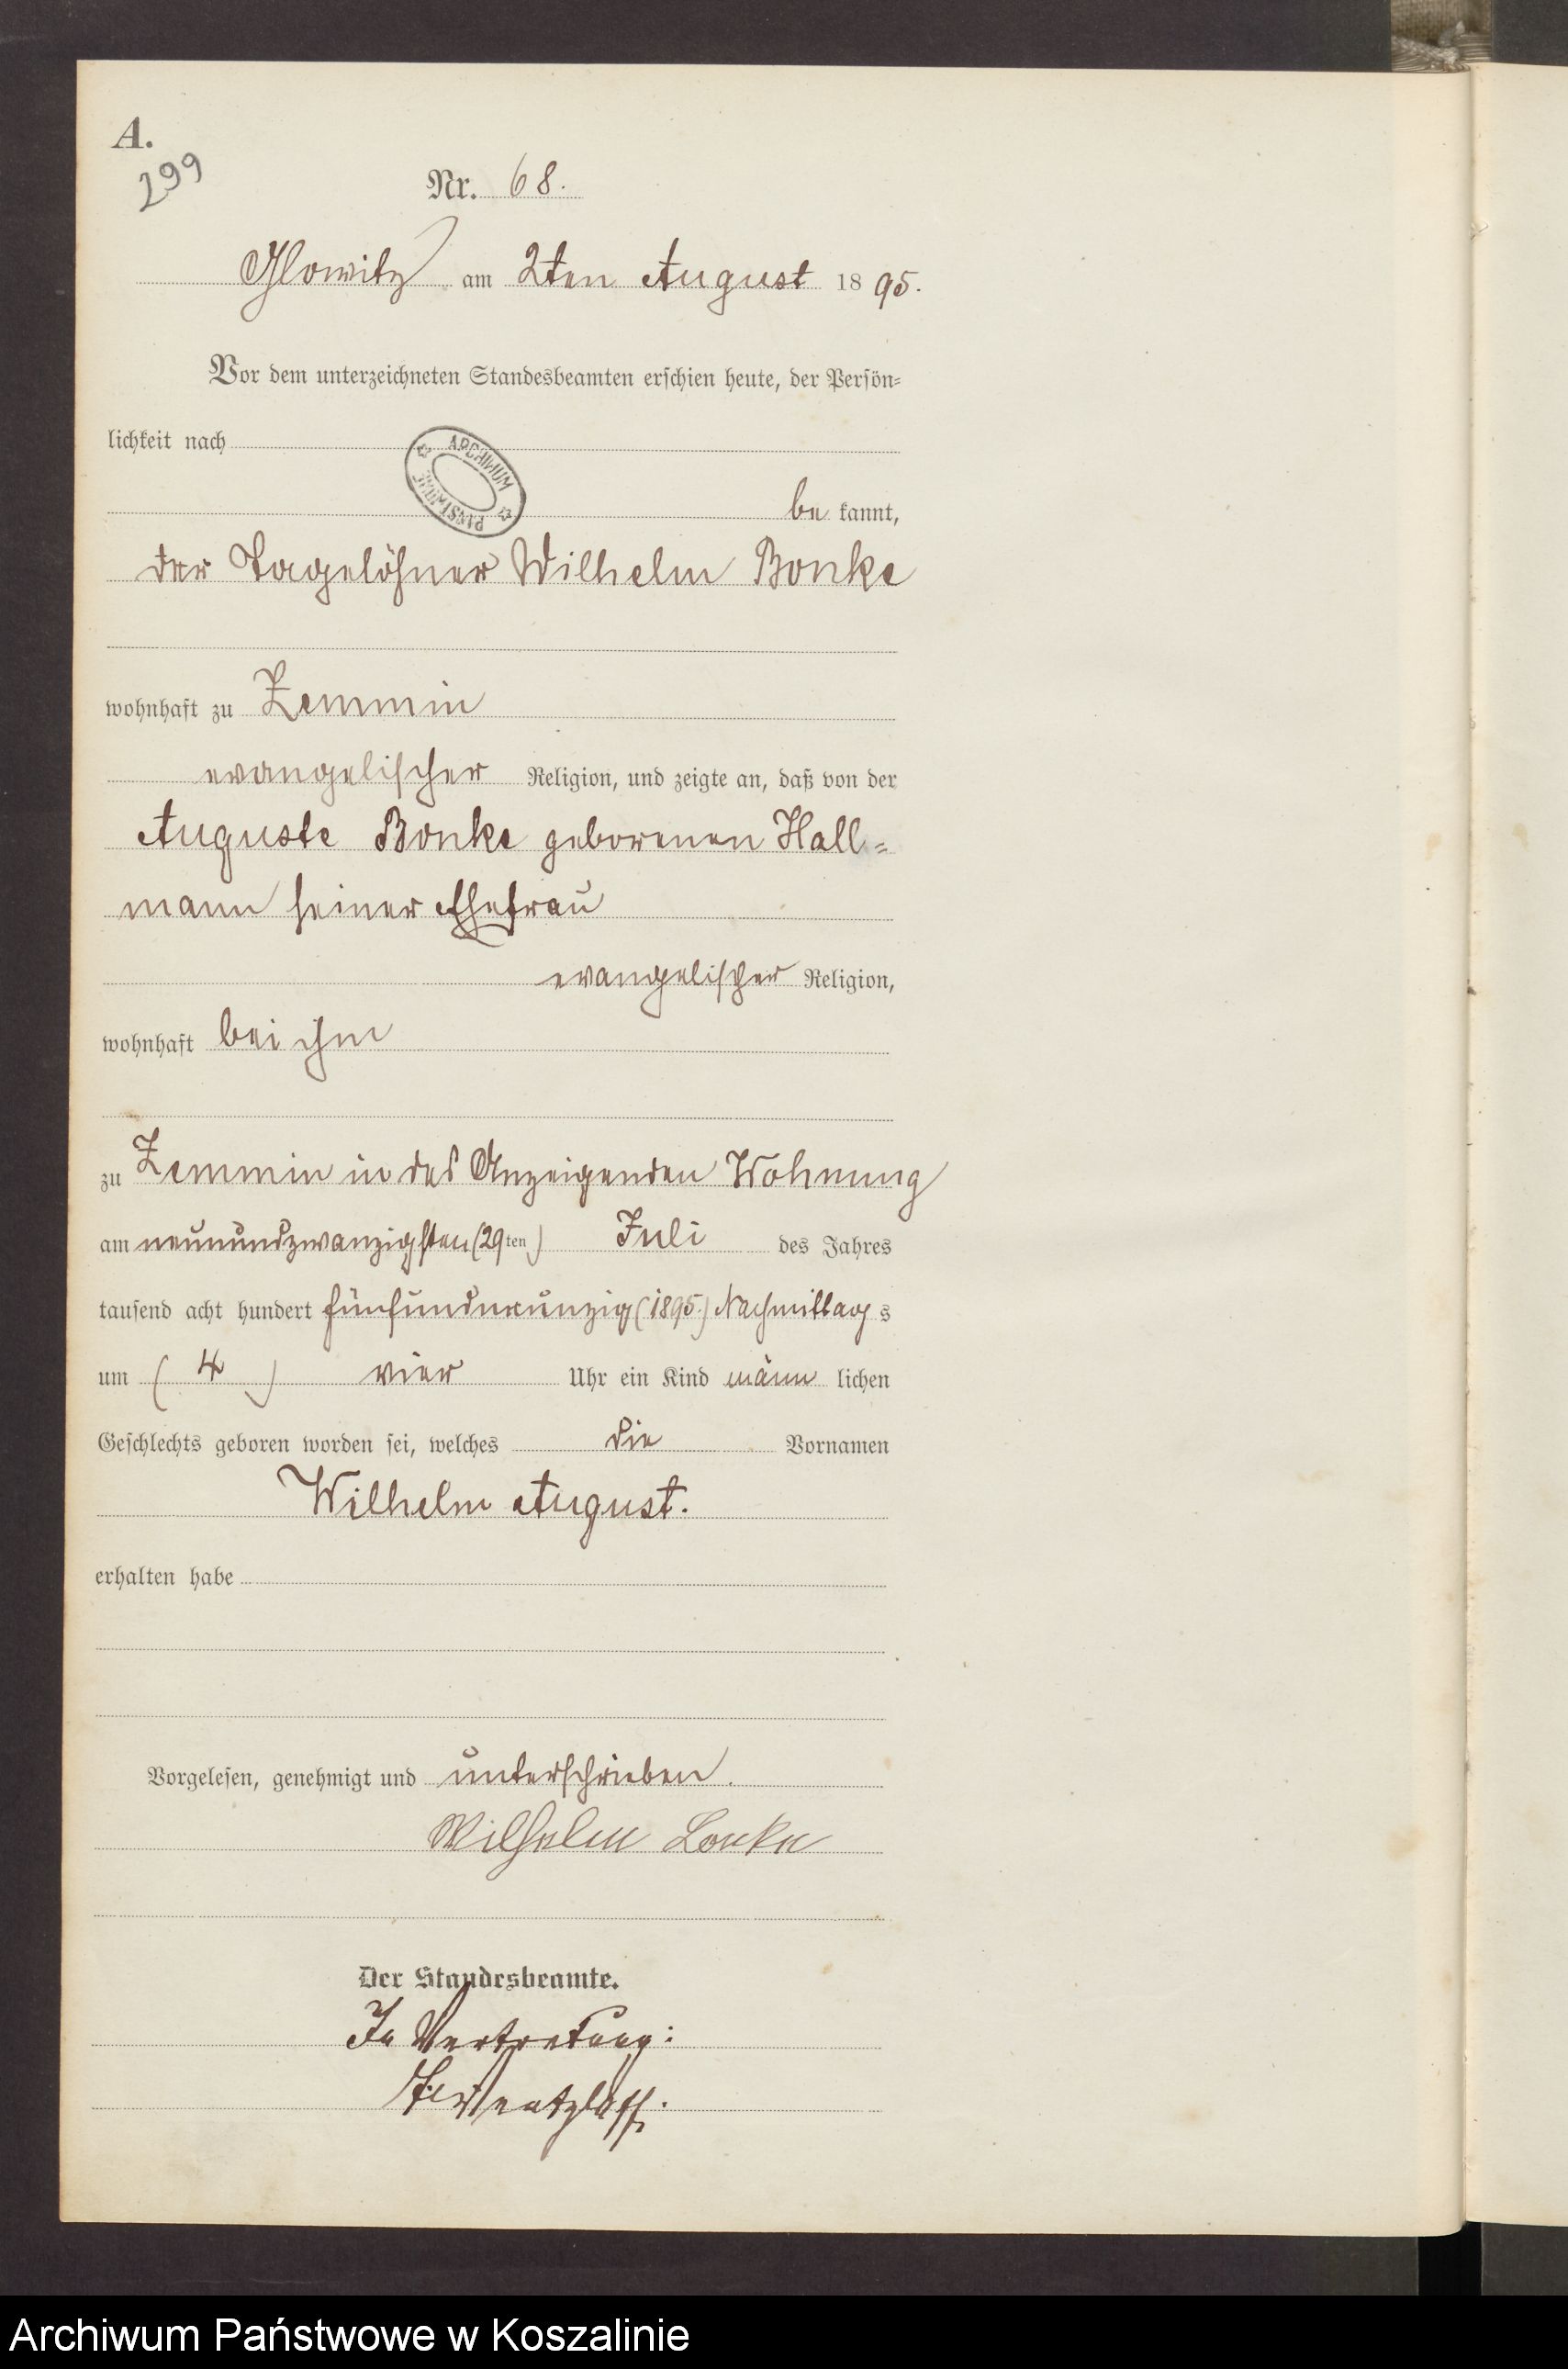 A.
299
Nr. 68.
Glowitz am 2ten August 1895.
Vor dem unterzeichneten Standesbeamten erschien heute, der Persön=
lichkeit nach
ARCHIWUM PAŃSTWOWE
be kannt,
der Tagelöhner Wilhelm Bonke
wohnhaft zu Zemmin
evangelischer Religion, und zeigte an, daß von der
Auguste Bonke geborenen Hall=
mann seiner Ehefrau
evangelischer Religion,
wohnhaft bei ihm
zu Zemmin in des Anzeigenden Wohnung
am neunundzwanzigsten (29ten) Juli des Jahres
tausend acht hundert fünfundneunzig (1895.) Nachmittag s
um ( 4 ) vier Uhr ein Kind männ lichen
Geschlechts geboren worden sei, welches die Vornamen
Wilhelm August.
erhalten habe
Vorgelesen, genehmigt und unterschrieben.
Wilhelm Bonke
Der Standesbeamte.
In Vertretung:
Archiwum Państwowe w Koszalinie